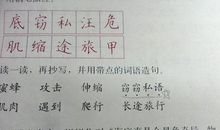 底 窃 私 汪 危
肌 缩 途 旅 甲
读一读，再抄写，并用带点的词语造句。
蜜蜂 攻击 伸缩 窃窃私语
肌肉 遇到 爬行 长途旅行